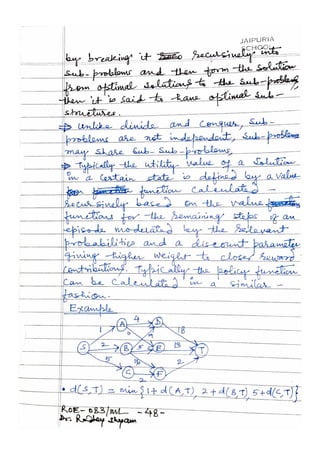 JAIPURIA
SCHOOL
by breaking it recursively into
sub-problems and then form the solution
from optimal solutions to the sub-problems,
then it is said to have optimal sub-
structures.
⇒ Unlike divide and conquer, sub-
problems are not independent, sub-problems
may share sub-sub-problems.
⇒ Typically the utility value of a solution
in a certain state is defined by a value
function calculated -
recursively based on the value
functions for the remaining steps of an
episode moderated by the relevant
probabilities and a discount parameter
giving higher weight to closer reward
contributions. Typically the policy function
can be calculated in a similar -
fashion.
Example
A 4 D
1 18
S 2 B 5 E 13 T
5 2
C 2 F
• d(S,T) = min{1+d(A,T), 2+d(B,T), 5+d(C,T)}
ROE-083/ML -48-
Dr.